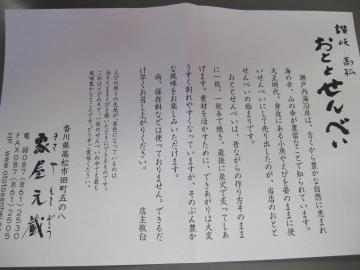 讃岐 高松
おととせんべい
瀬戸内海沿岸は、古くから豊かな自然に恵まれ
海の幸、山の幸が豊富なことで知られています。
大正時代、身近にある小魚やえびを姿のままに使
いせんべいにして売り出したのが、当店のおとと
せんべいの始まりです。
おととせんべいは、昔ながらの作り方そのまま
に一枚、一枚手で焼き、最後に炭火で炙ってしあ
げます。素材を活かすために、できあがりは大変
うすく割れやすくなっていますが、そのぶん豊か
な風味をお楽しみいただけます。
尚、保存料などは使っておりません。できるだ
け早くお召し上がりください。
店主敬白
香川県高松市田町五の八
象屋元蔵
きさやもとぞう
電話087(861)2530
FAX087(861)2505